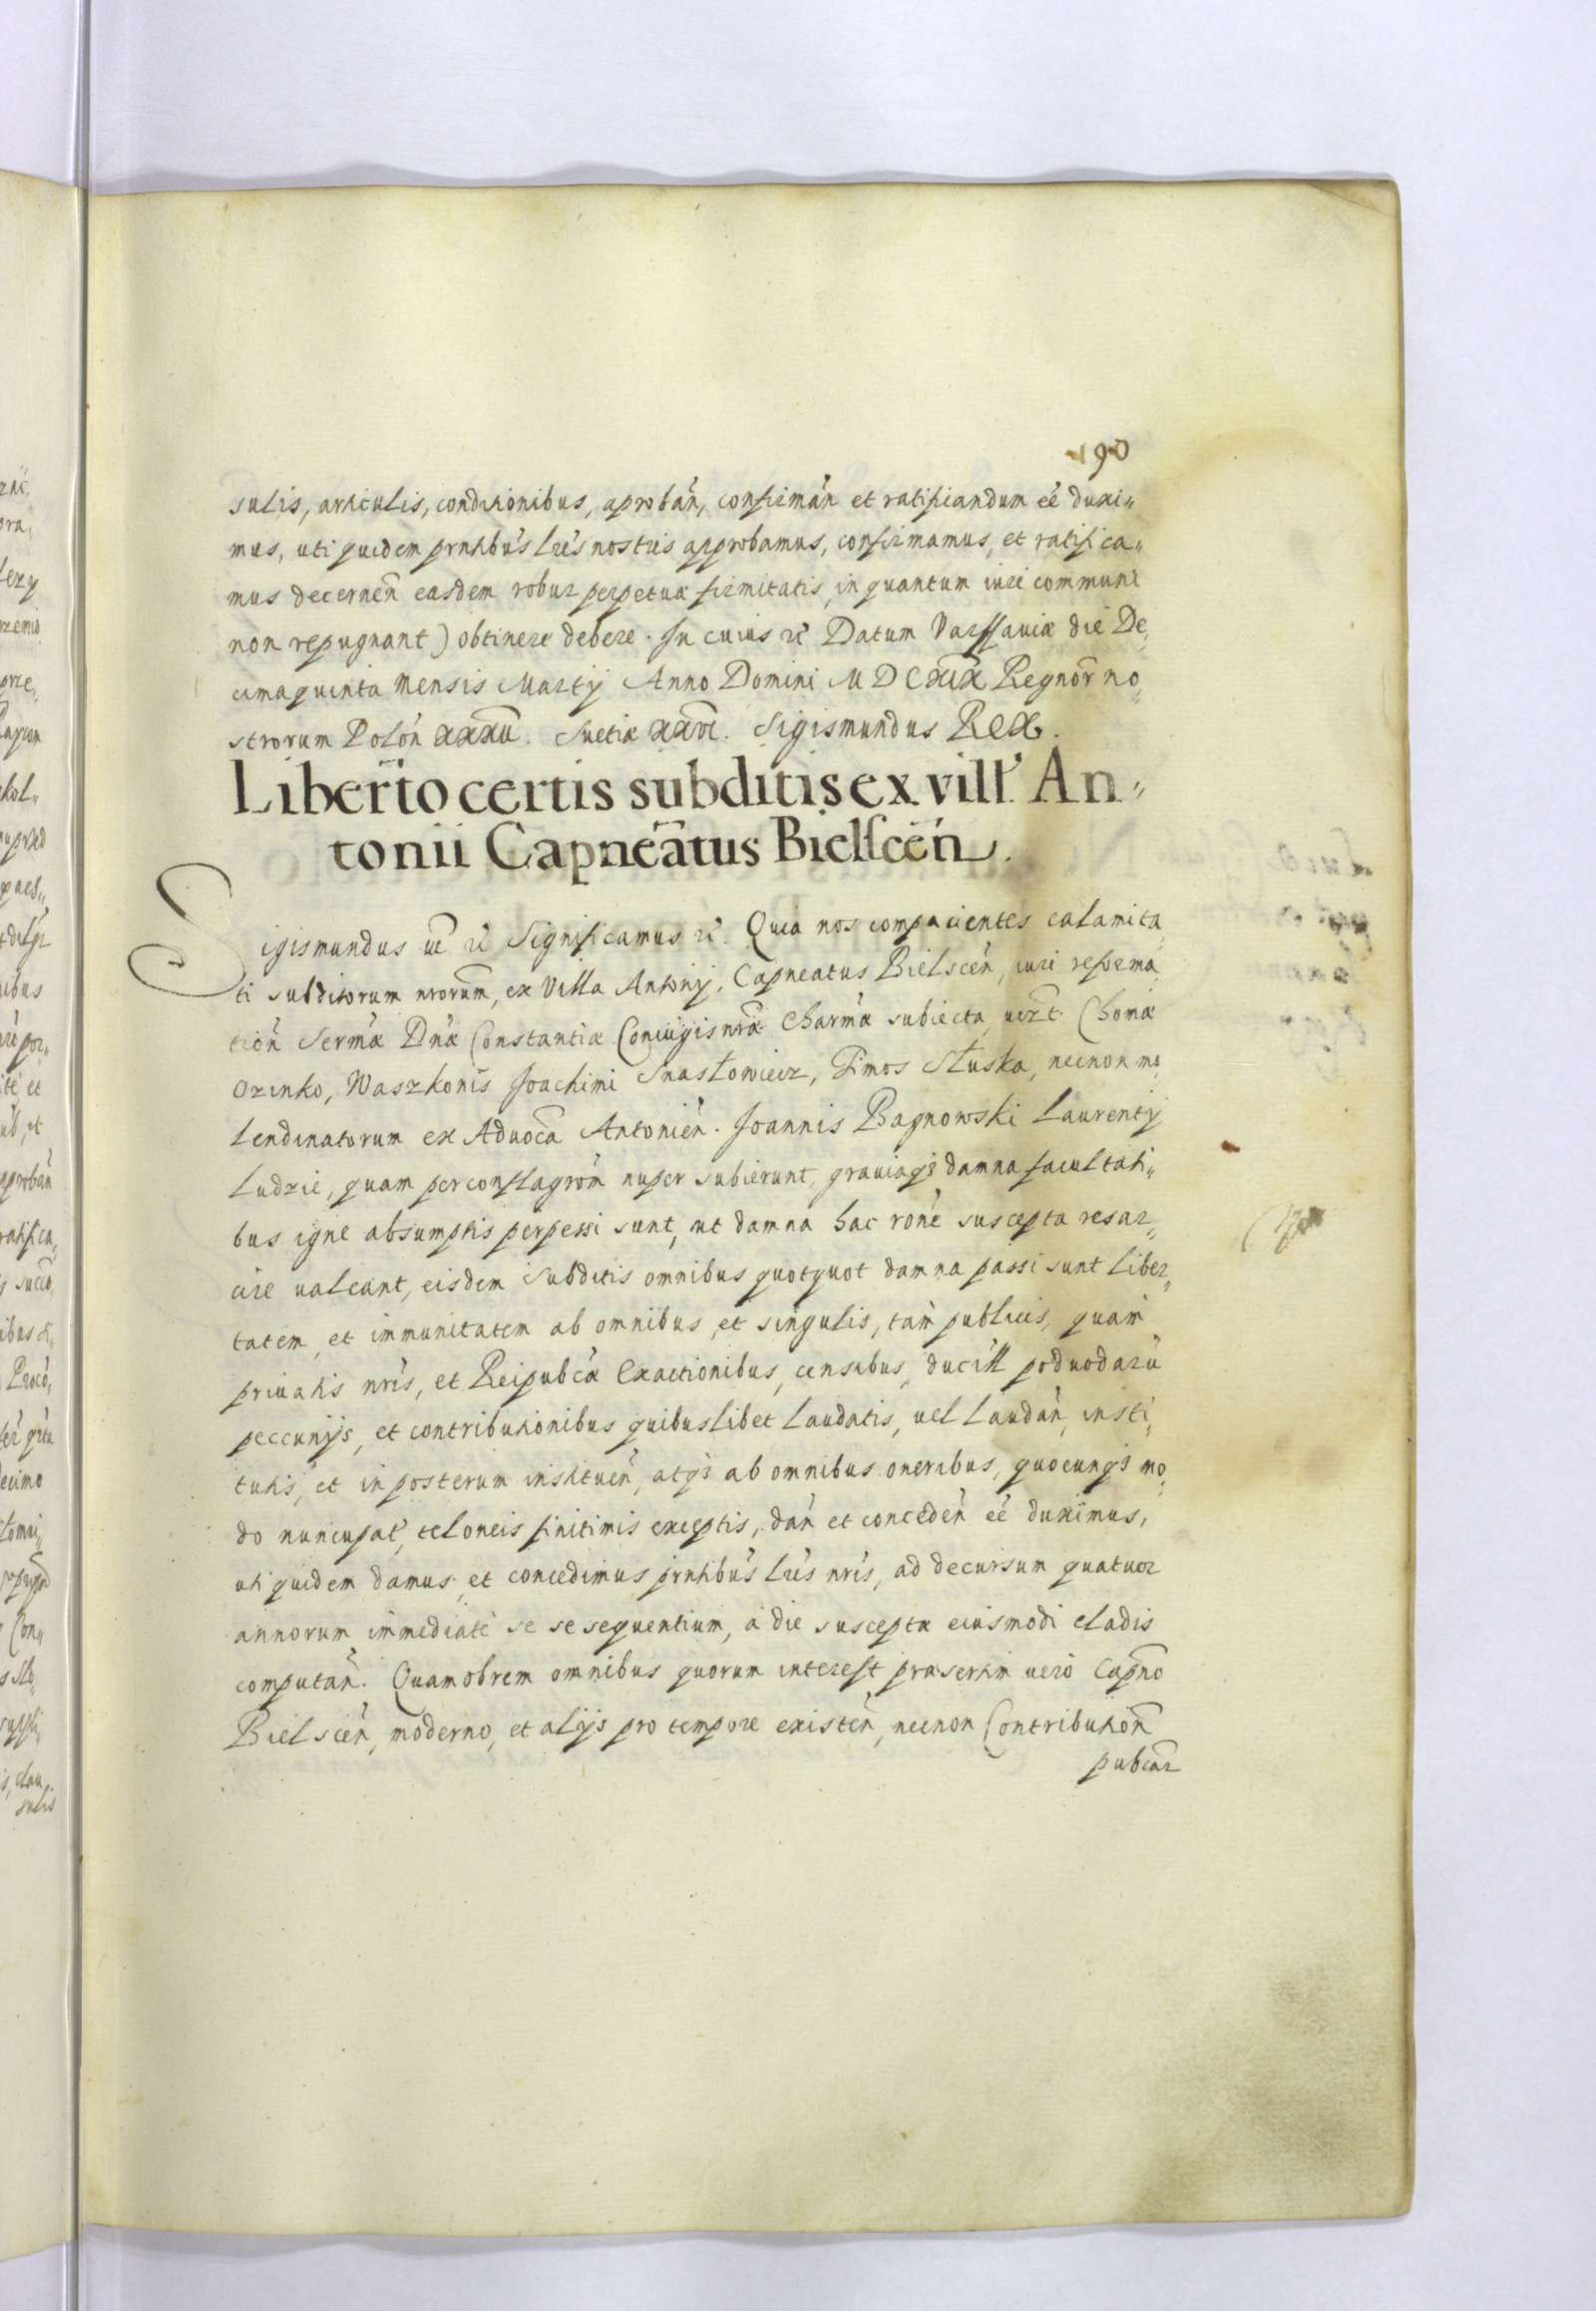 190
sulis, articulis, conditionibus, aprobań, confirmań et ratificandum eé duxi„
mus, uti quidem prntibus lrís nostris approbamus, confirmamus, et ratifica„
mus decerneń easdem robur perpetuæ firmitatis, in quantum iuri communi
non repugnant) obtinere debere. In cuius rê Datum Varssauiæ die De„
cimaquinta Mensis Martij Anno Domini M D C XIX Regnor̃ no„
strorum Poloń XXXII. Suetiæ XXVI. Sigismundus Rex.
Liberto certis subditis ex vill' An„
tonii Capneãtus Bielsceń.
Sigismundus &c̃ rê Significamus rê. Quia nos compacientes calamita„
ti subditorum nrorum̃, ex Villa Antonij, Capneatus Bielsceń, iuri reforma„
tioń Serm̃æ Dñæ Constantiæ Coniugis nr̃æ Charm̃æ subiecta, uizt. Chomæ
Ozinko, Waszkonis Joachimi Snastowicz, Timos Słuska, necnon mo„
lendinatorum ex Aduocã Antonień. Joannis Bagnowski Laurentij
Ludzie, quam per conflagrom̃ nuper subierunt, grauiaqȝ damna facultati„
bus igne absumptis perpessi sunt, ut damna hac roñe suscepta resar„
cire ualeant, eisdem subditis omnibus quotquot damna passi sunt liber„
tatem, et immunitatem ab omnibus, et singulis, tam̀ publicis, quam̀
priuatis nrís, et Reipubc̃æ Exactionibus, censibus, ducill podwodarũ
peccunijs, et contributionibus quibuslibet laudatis, uel laudań, insti„
tutis, et in posterum instituеń, atqȝ ab omnibus oneribus, quocunqȝ mo„
do nuncupat', teloneis finitimis exceptis, dań et concedeń eé duximus,
uti quidem damus, et concedimus prntibus lrís nrís, ad decursum quatuor
annorum immediatè se se sequentium, à die suscepta eiusmodi cladis
computań. Quamobrem omnibus quorum interest præsertim uerò Capño
Bielsceń, moderno, et alijs pro tempore existeń, necnon Contributioń
pubcar̃